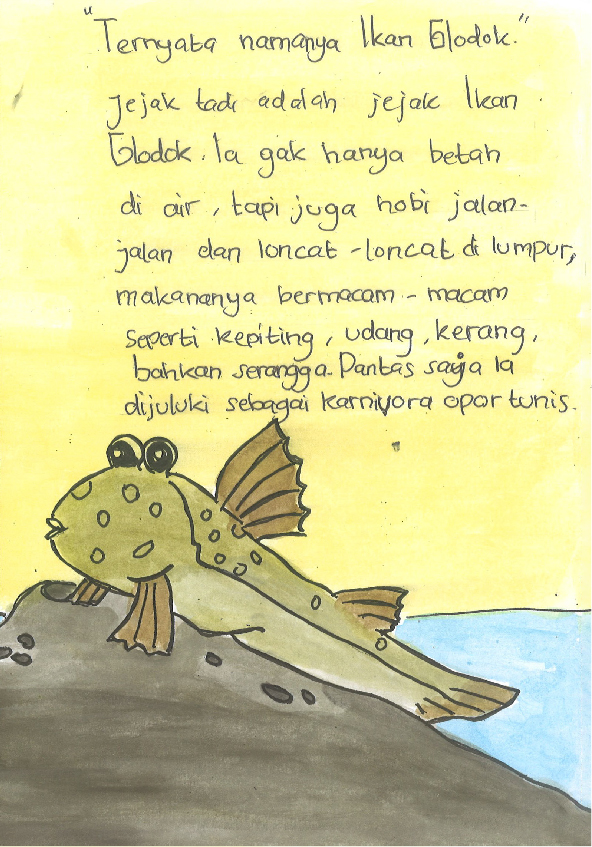 "Ternyata namanya Ikan Glodok."
Jejak tadi adalah jejak Ikan
Glodok. Ia gak hanya betah
di air, tapi juga hobi jalan-
jalan dan loncat-loncat di lumpur,
makananya bermacam-macam
seperti kepiting, udang, kerang,
bahkan serangga. Pantas saja Ia
dijuluki sebagai karnivora oportunis.